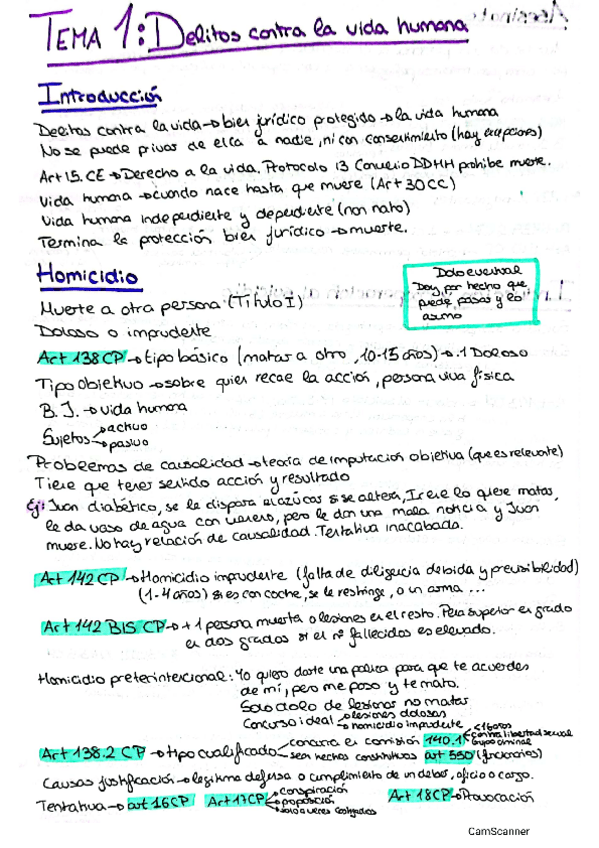 TEMA 1: Delitos contra la vida humana
Introducción
Delitos contra la vida → bien jurídico protegido → la vida humana
No se puede privar de ella a nadie, ni con consentimiento (hay excepciones)
Art 15. CE → Derecho a la vida. Protocolo 13 Convenio DDHH prohibe muerte.
Vida humana → cuando nace hasta que muere (Art 30 CC)
Vida humana independiente y dependiente (non nato)
Termina la protección bien jurídico → muerte.
Homicidio
Dolo eventual
Doy por hecho que
puede pasar y lo
asumo
Muerte a otra persona (Título I)
Doloso o imprudente
Art 138 CP → tipo básico (matar a otro, 10-15 años) → .1 Doloso
Tipo objetivo → sobre quien recae la acción, persona viva física
B.J. → vida humana
Sujetos → activo
→ pasivo
Problemas de causalidad → teoría de imputación objetiva (que es relevante)
Tiene que tener sentido acción y resultado
Ej: Juan diabético, se le dispara el azúcar si se altera, Irene lo quiere matar,
le da vaso de agua con veneno, pero le dan una mala noticia y Juan
muere. No hay relación de causalidad. Tentativa inacabada.
Art 142 CP → Homicidio imprudente (falta de diligencia debida y previsibilidad)
(1-4 años) si es con coche, se le restringe, o un arma ...
Art 142 BIS CP → + 1 persona muerta o lesiones en el resto. Pena superior en grado
en dos grados si el nº fallecidos es elevado.
Homicidio preterintencional: Yo quiero darte una paliza para que te acuerdes
de mí, pero me paso y te mato.
Solo dolo de lesionar no matar
Concurso ideal → lesiones dolosas
→ homicidio imprudente
Art 138.2 CP → tipo cualificado → concurra en comisión 140.1 → <16 años
→ contra libertad sexual
→ grupo criminal
→ sean hechos constitutivos art 550 (funcionarios)
Causas justificación → legítima defensa o cumplimiento de un deber, oficio o cargo.
Tentativa → art 16 CP Art 17 CP → conspiración
→ proposición
→ solo a veces castigados
Art 18 CP → Provocación
CamScanner